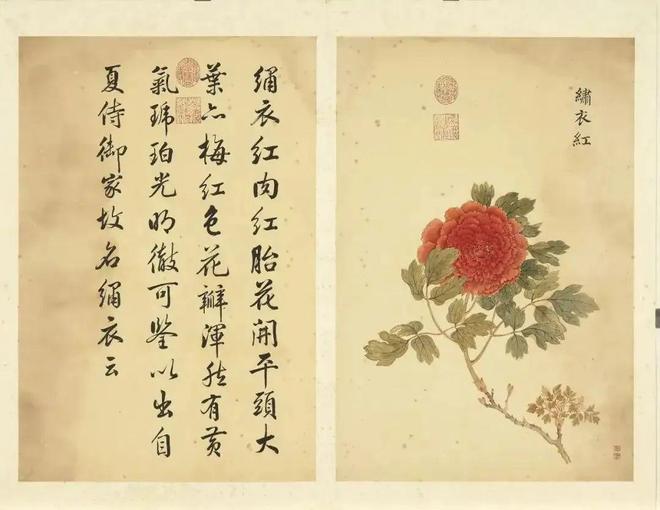 繡衣紅
繡衣紅肉紅胎花開平頭大
葉亦梅紅色花瓣渾然有黃
氣琥珀光明徹可鑒以出自
夏侍御家故名繡衣云